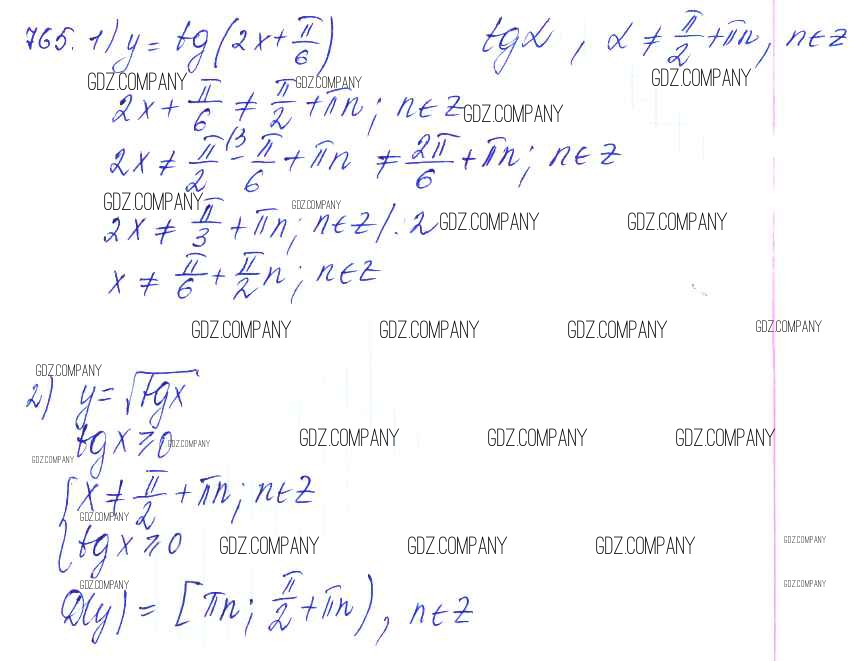 765. 1) y = tg(2x + π/6)    tgα, α ≠ π/2 + πn, n∈Z
GDZ.COMPANY GDZ.COMPANY GDZ.COMPANY
2x + π/6 ≠ π/2 + πn; n∈Z GDZ.COMPANY
2x ≠ π/2 (3 - π/6 + πn ≠ 2π/6 + πn; n∈Z
GDZ.COMPANY GDZ.COMPANY
2x ≠ π/3 + πn; n∈Z /: 2 GDZ.COMPANY GDZ.COMPANY
x ≠ π/6 + π/2 n; n∈Z
GDZ.COMPANY GDZ.COMPANY GDZ.COMPANY GDZ.COMPANY
GDZ.COMPANY
2) y = √tgx
tgx ≥ 0 GDZ.COMPANY GDZ.COMPANY GDZ.COMPANY GDZ.COMPANY
GDZ.COMPANY
{ x ≠ π/2 + πn; n∈Z
GDZ.COMPANY
tgx ≥ 0 GDZ.COMPANY GDZ.COMPANY GDZ.COMPANY GDZ.COMPANY
GDZ.COMPANY GDZ.COMPANY
D(y) = [πn; π/2 + πn), n∈Z